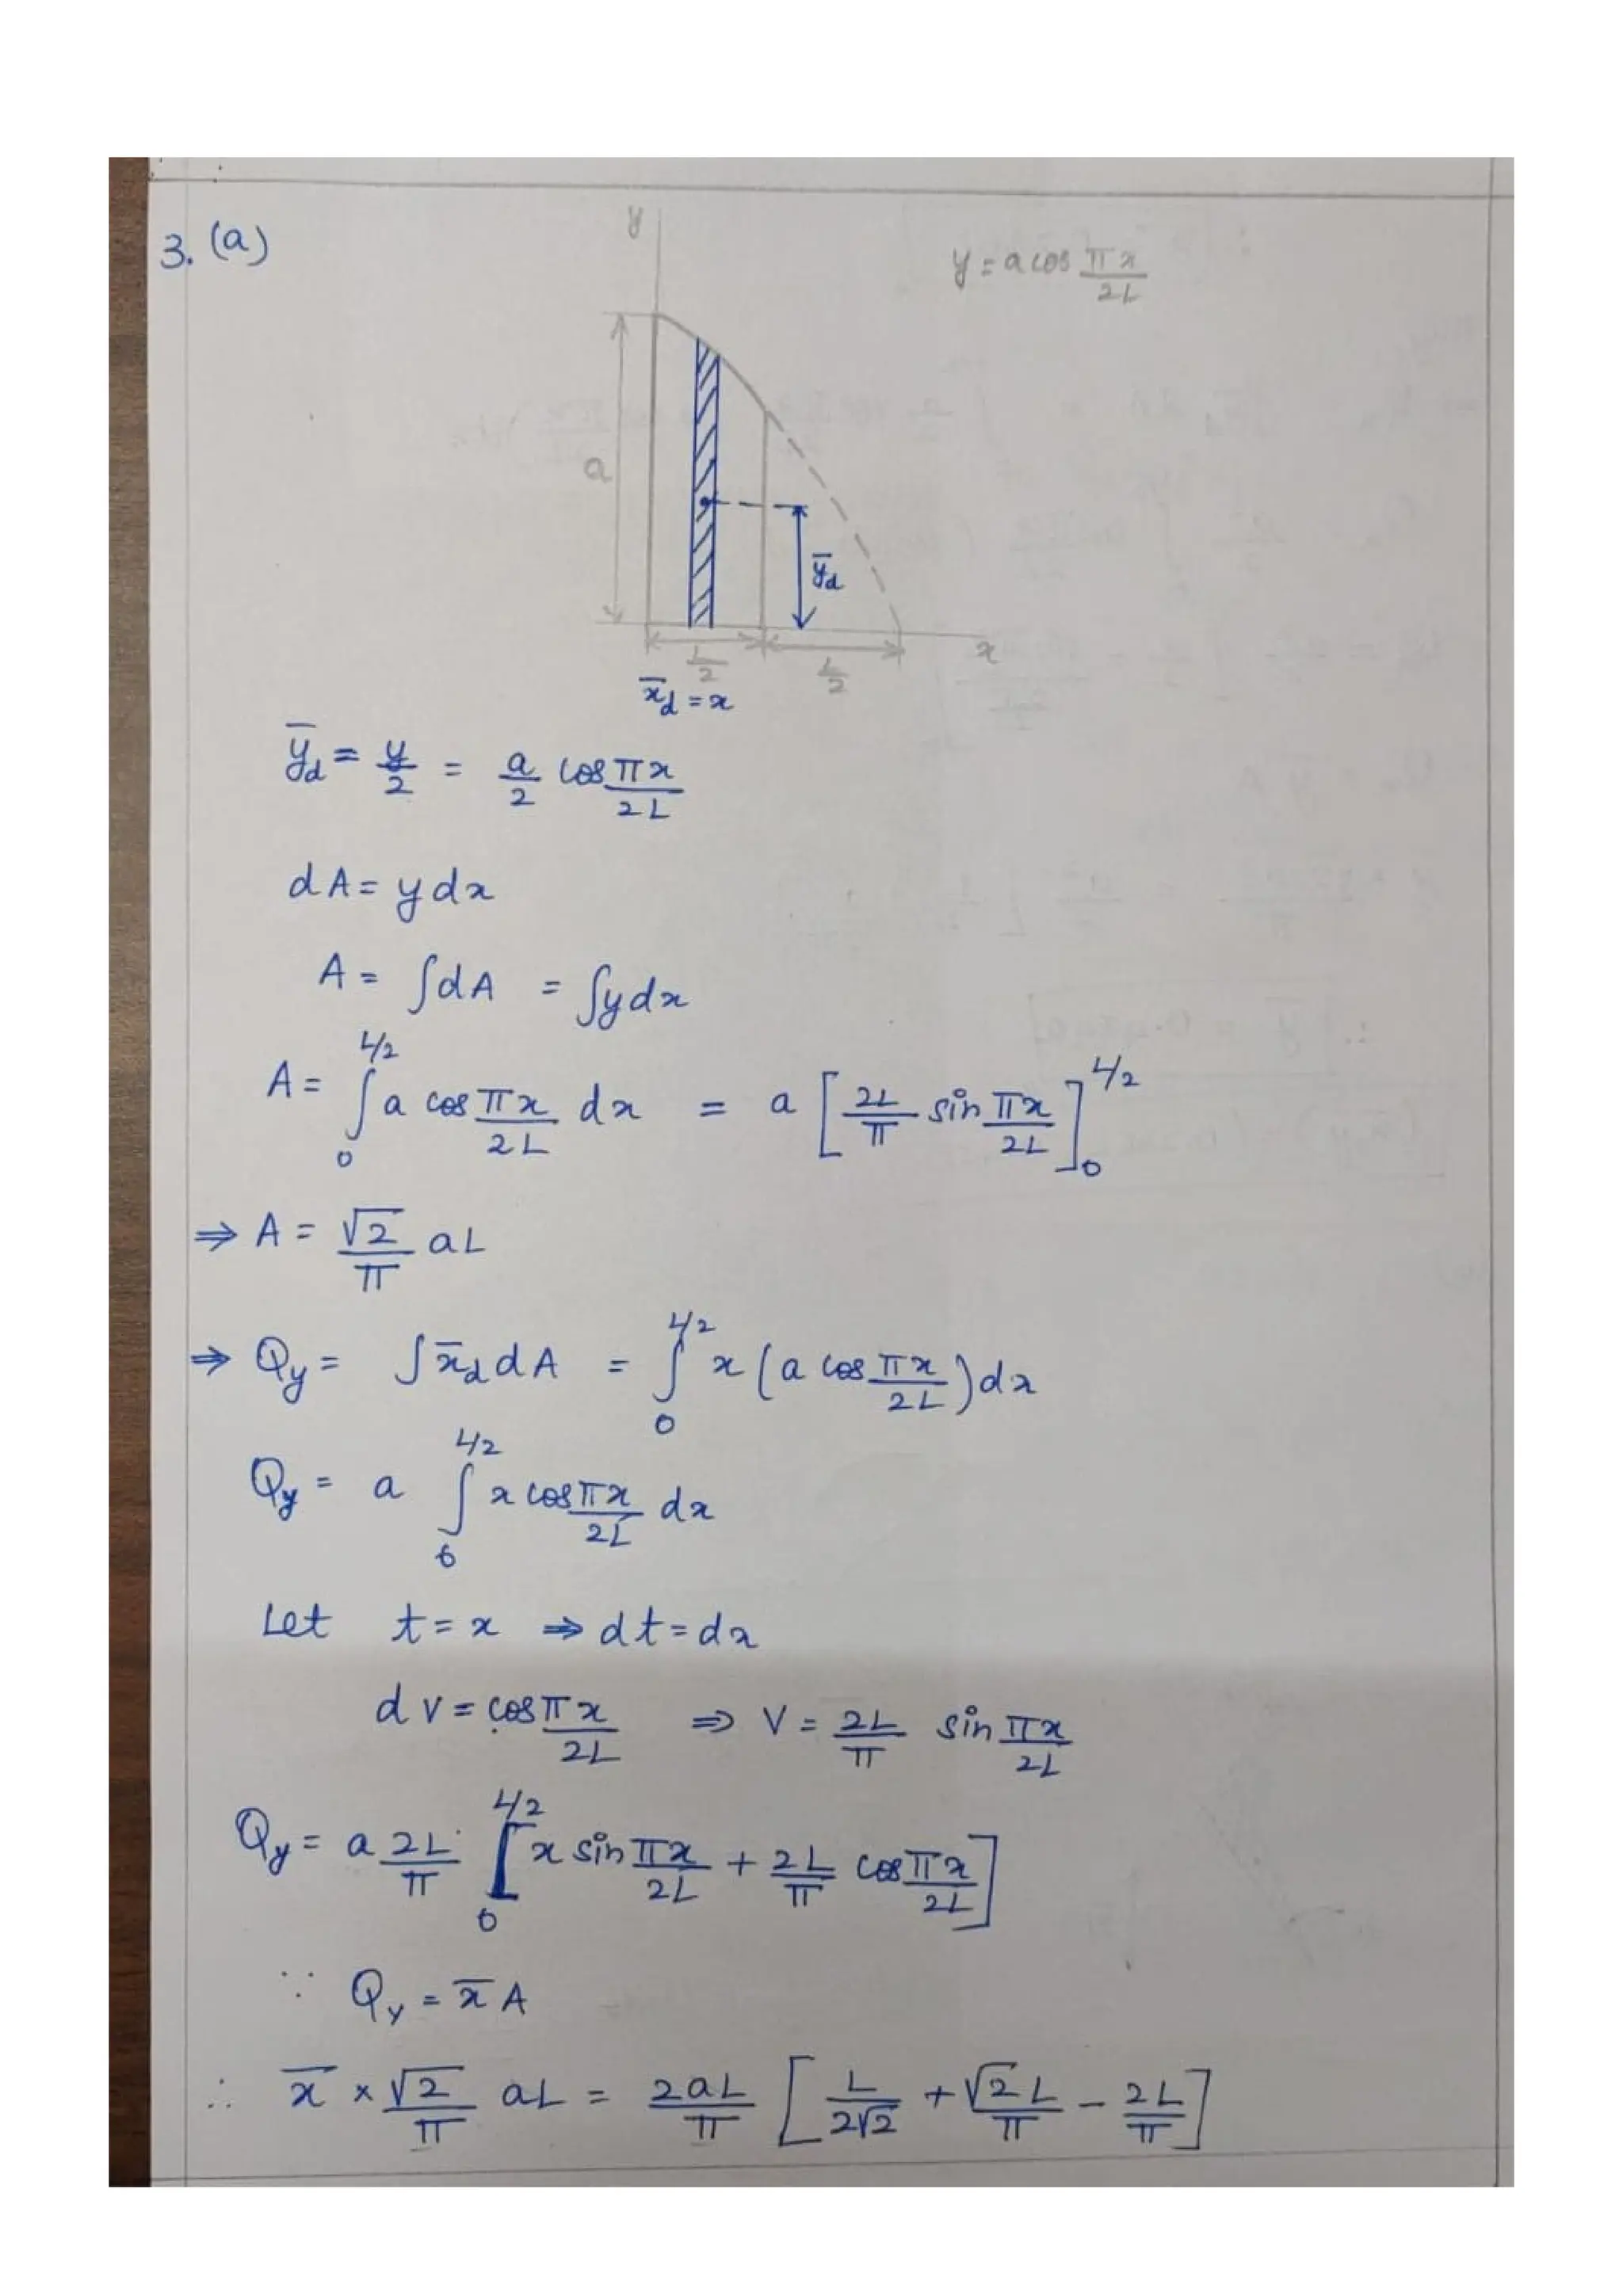 3. (a)
y
y = a cos πx/2L
a
ȳd
x
L/2 L/2
x̄d = x
ȳd = y/2 = a/2 cos πx/2L
dA = y dx
A = ∫dA = ∫y dx
A = ∫₀^{L/2} a cos πx/2L dx = a [2L/π sin πx/2L]₀^{L/2}
⇒ A = √2/π aL
⇒ Qy = ∫x̄d dA = ∫₀^{L/2} x (a cos πx/2L) dx
Qy = a ∫₀^{L/2} x cos πx/2L dx
Let t = x ⇒ dt = dx
dv = cos πx/2L ⇒ V = 2L/π sin πx/2L
Qy = a 2L/π ₀^{L/2}[x sin πx/2L + 2L/π cos πx/2L]
∵ Qy = x̄ A
∴ x̄ × √2/π aL = 2aL/π [L/2√2 + √2L/π − 2L/π]